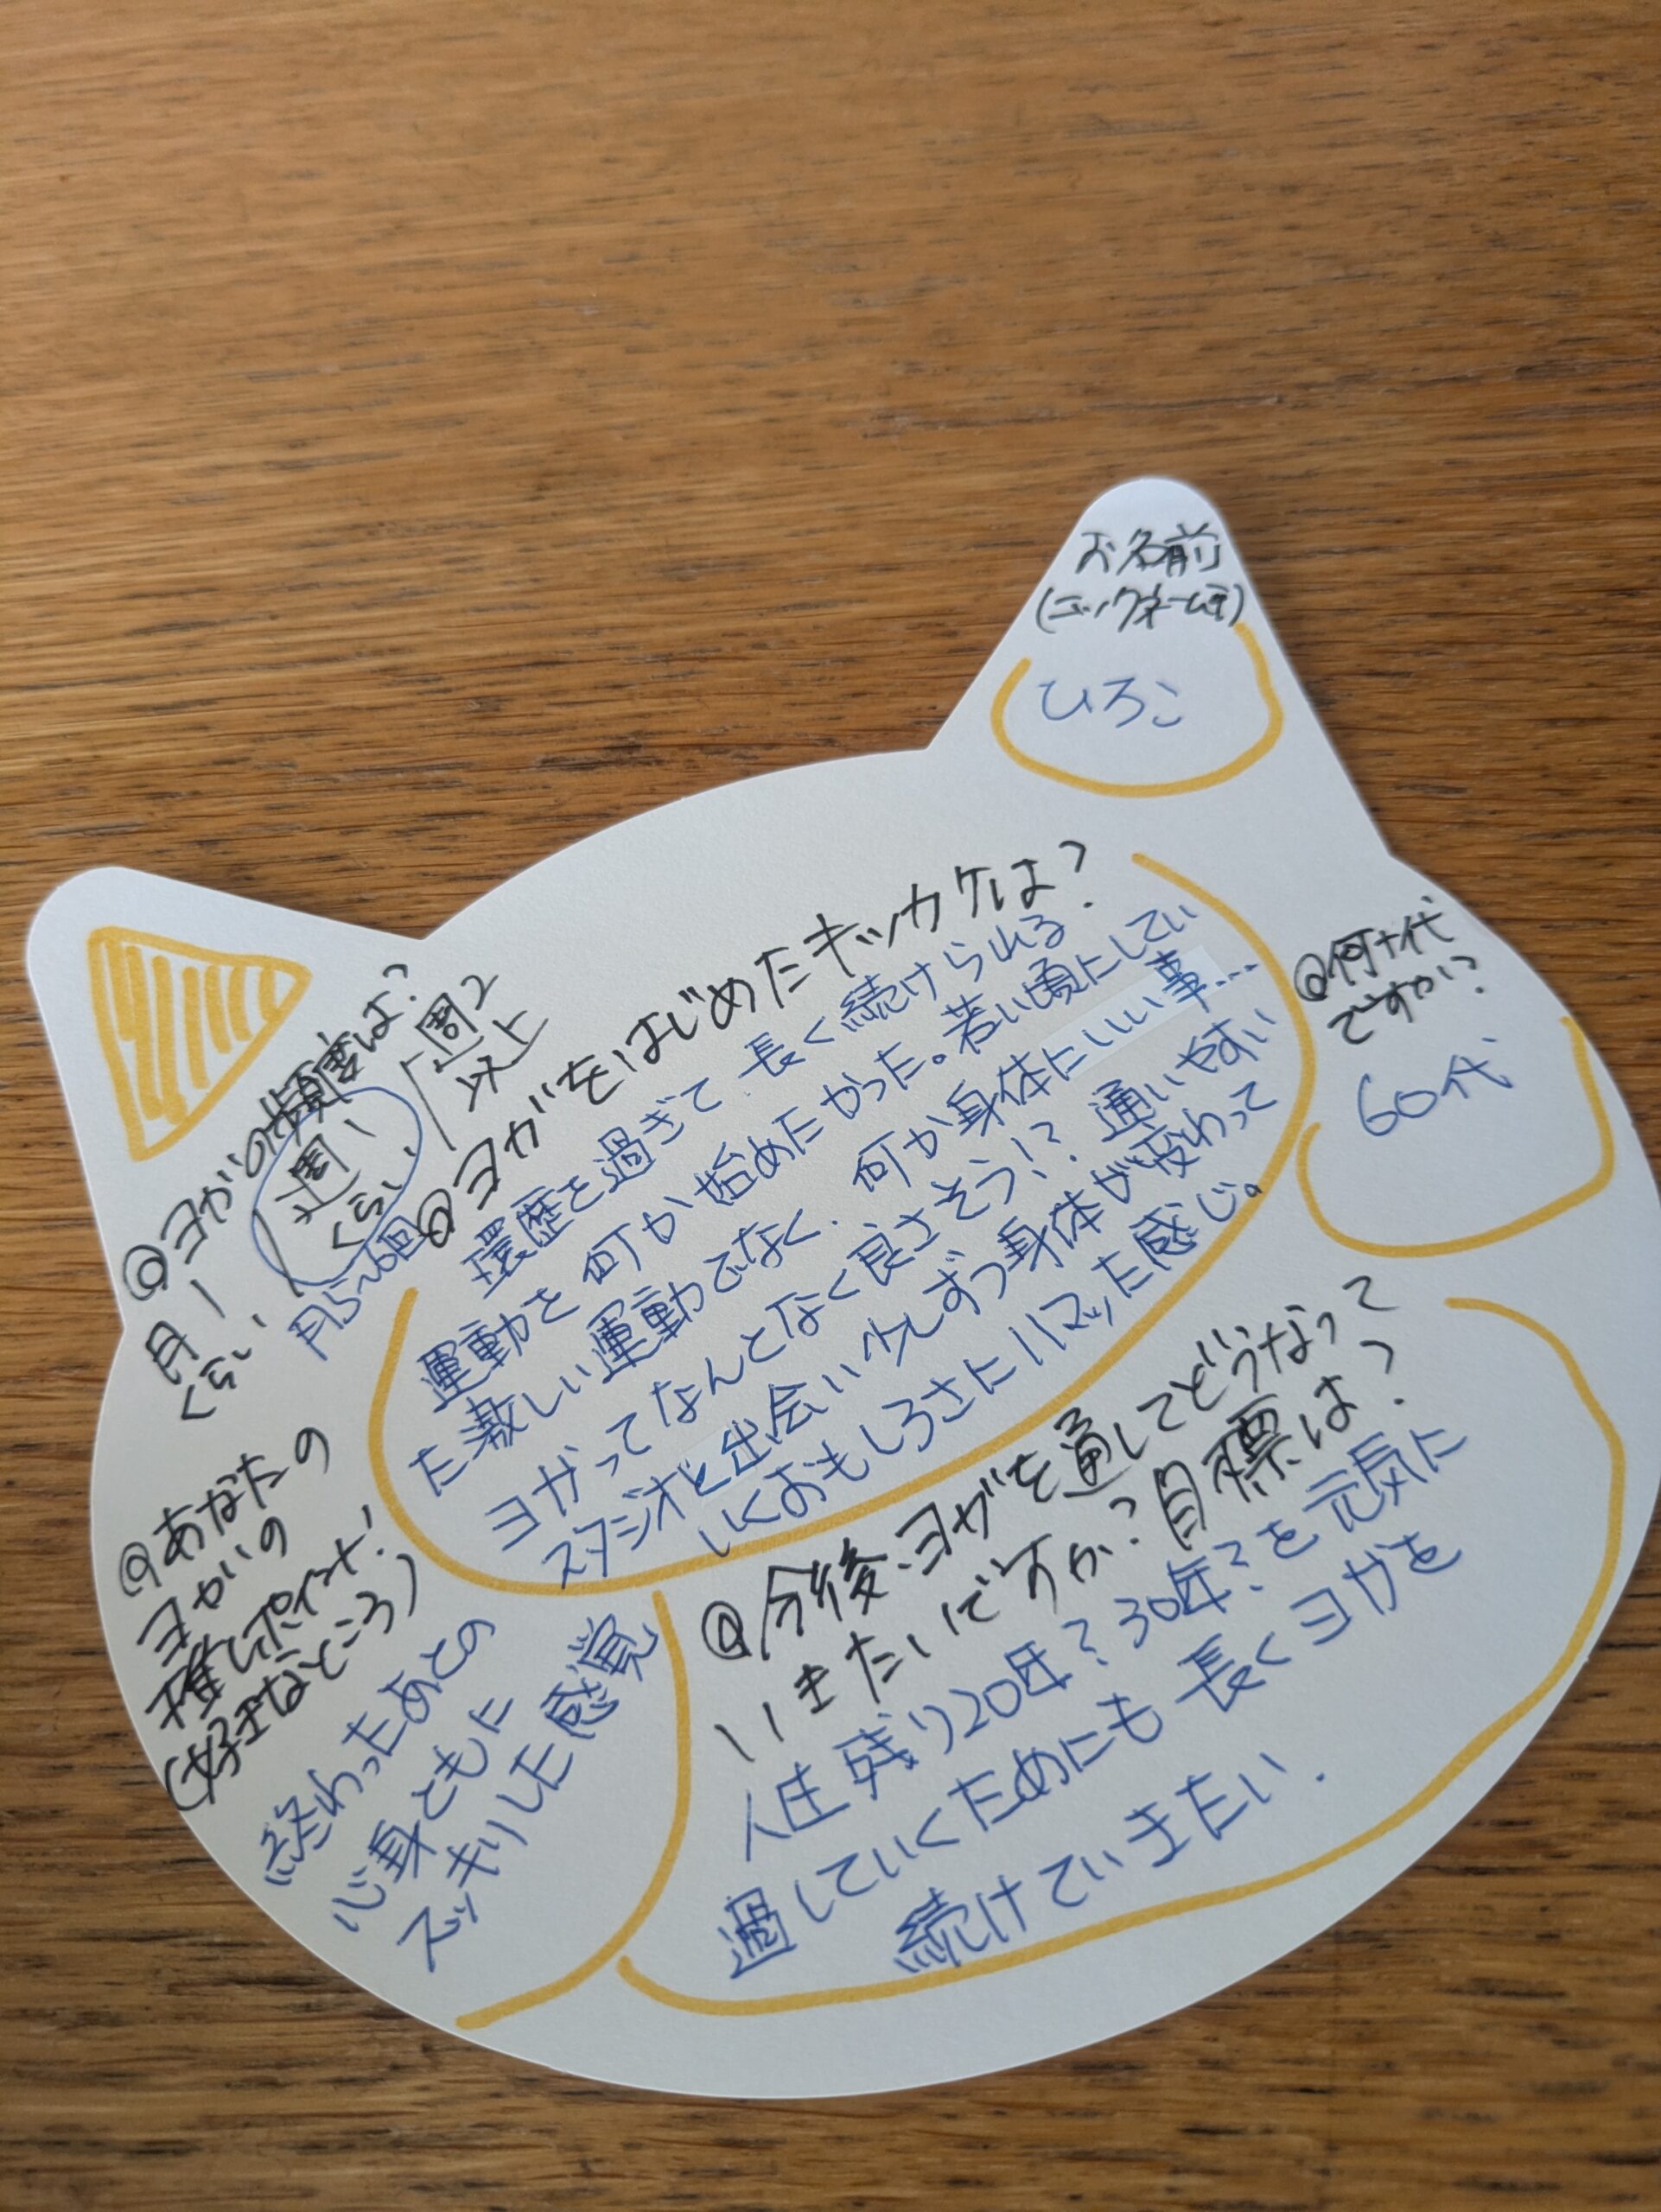 お名前
(ニックネーム可)
ひろこ
@何十代
ですか?
60代
@ヨガの頻度は?
月1
くらい
週1
くらい
週2
以上
月5~6回
@ヨガをはじめたキッカケは?
環歴を過ぎて長く続けられる
運動を何か始めたかった。若い頃にしてい
た激しい運動でなく、何か身体にいい事…
ヨガってなんとなく良さそう!? 通いやすい
スタジオと出会い少しずつ身体が変わって
いくおもしろさにハマッた感じ。
@あなたの
ヨガの
推しポイント!
(好きなところ)
終わったあとの
心身ともに
スッキリした感覚
@今後、ヨガを通してどうなって
いきたいですか?目標は?
人生残り20年?30年?を元気に
過していくためにも長くヨガを
続けていきたい.